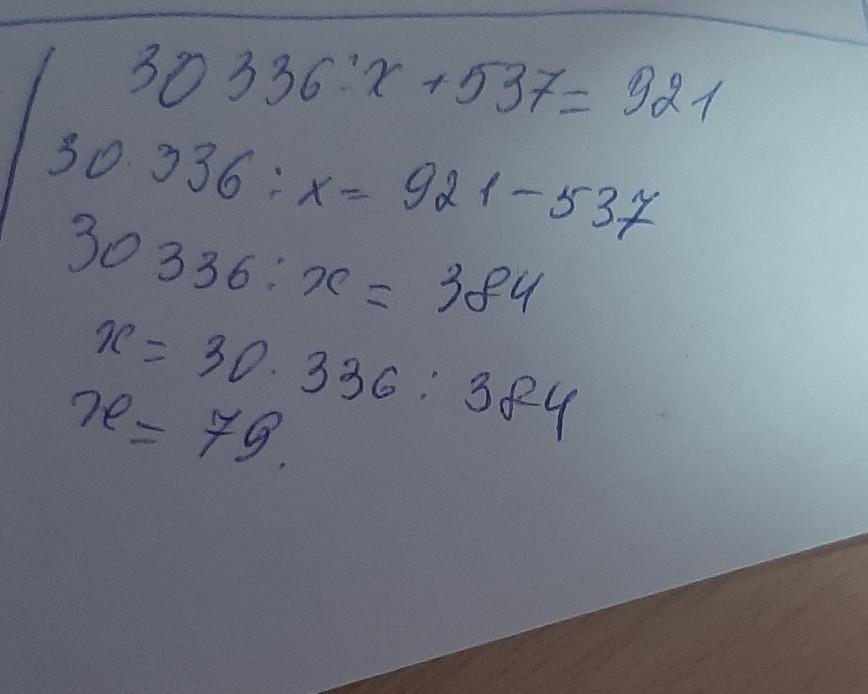 30 336 : x + 537 = 921
30.336 : x = 921 - 537
30 336 : x = 384
x = 30.336 : 384
x = 79.